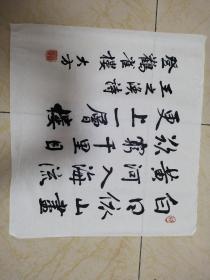 白日依山盡
黄河入海流
欲窮千里目
更上一層樓
王之渙詩
登鸛雀樓 大方